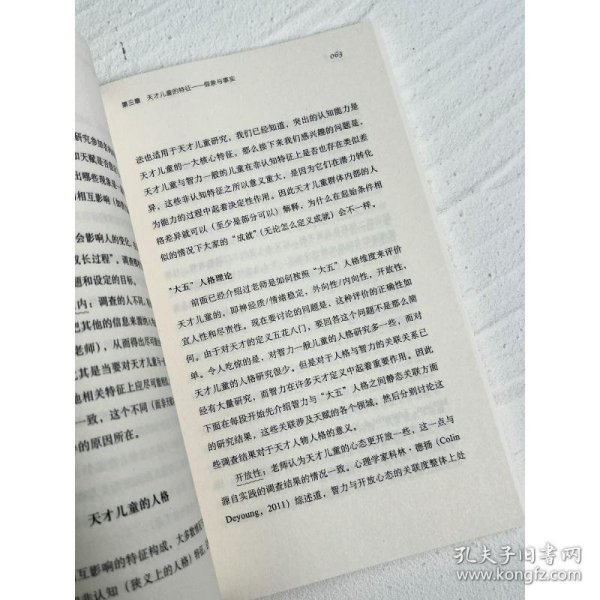 研究参加者
和天赋是否
出哪些现象是一
相互影响（如
会影响人的变幻，
成长过程”，调查
题和设定的目标。
且内：调查的人不同，
把其他的信息来源的人
老师），从而得出尽可
尤其是当要对天才儿童与一
他相关特征上应尽可能
一致，这个不同
的原因所在。
天才儿童的人格
互影响的特征构成，大多数
非认知（狭义上的人格）特征，
第三章 天才儿童的特征——假象与事实
063
法也适用于天才儿童研究，我们已经知道，突出的认知能力是
天才儿童的一大核心特征。那么接下来我们感兴趣的问题是，
天才儿童与智力一般的儿童在非认知特征上是否也存在类似差
异，这些非认知特征之所以意义重大，是因为它们在潜力转化
为能力的过程中起着决定性作用。因此天才儿童群体内部的人
格差异就可以（至少是部分可以）解释，为什么在起始条件相
似的情况下大家的“成就”（无论怎么定义成就）会不一样。
“大五”人格理论
前面已经介绍过老师是如何按照“大五”人格维度来评价
天才儿童的，即神经质/情绪稳定，外向性/内向性，开放性，
宜人性和尽责性，现在要讨论的问题是，这种评价的正确性如
何。由于对天才的定义五花八门，要回答这个问题不是那么简
单。令人吃惊的是，对智力一般儿童的人格研究多一些，而对
天才儿童的人格研究很少。但是对于人格与智力的关联关系已
经有大量研究，而智力在许多天才定义中起着重要作用。因此
下面在每段开始先介绍智力与“大五”人格之间静态关联方面
的研究结果，这些关联涉及天赋的各个领域，然后分别讨论这
些调查结果对于天才人物人格的意义。
开放性：老师认为天才儿童的心态更开放一些，这一点与
源自实践的调查结果的情况一致。心理学家科林·德扬（Colin
Deyoung，2011）综述道，智力与开放心态的关联度整体上处
孔夫子旧书网
www.kongfz.com